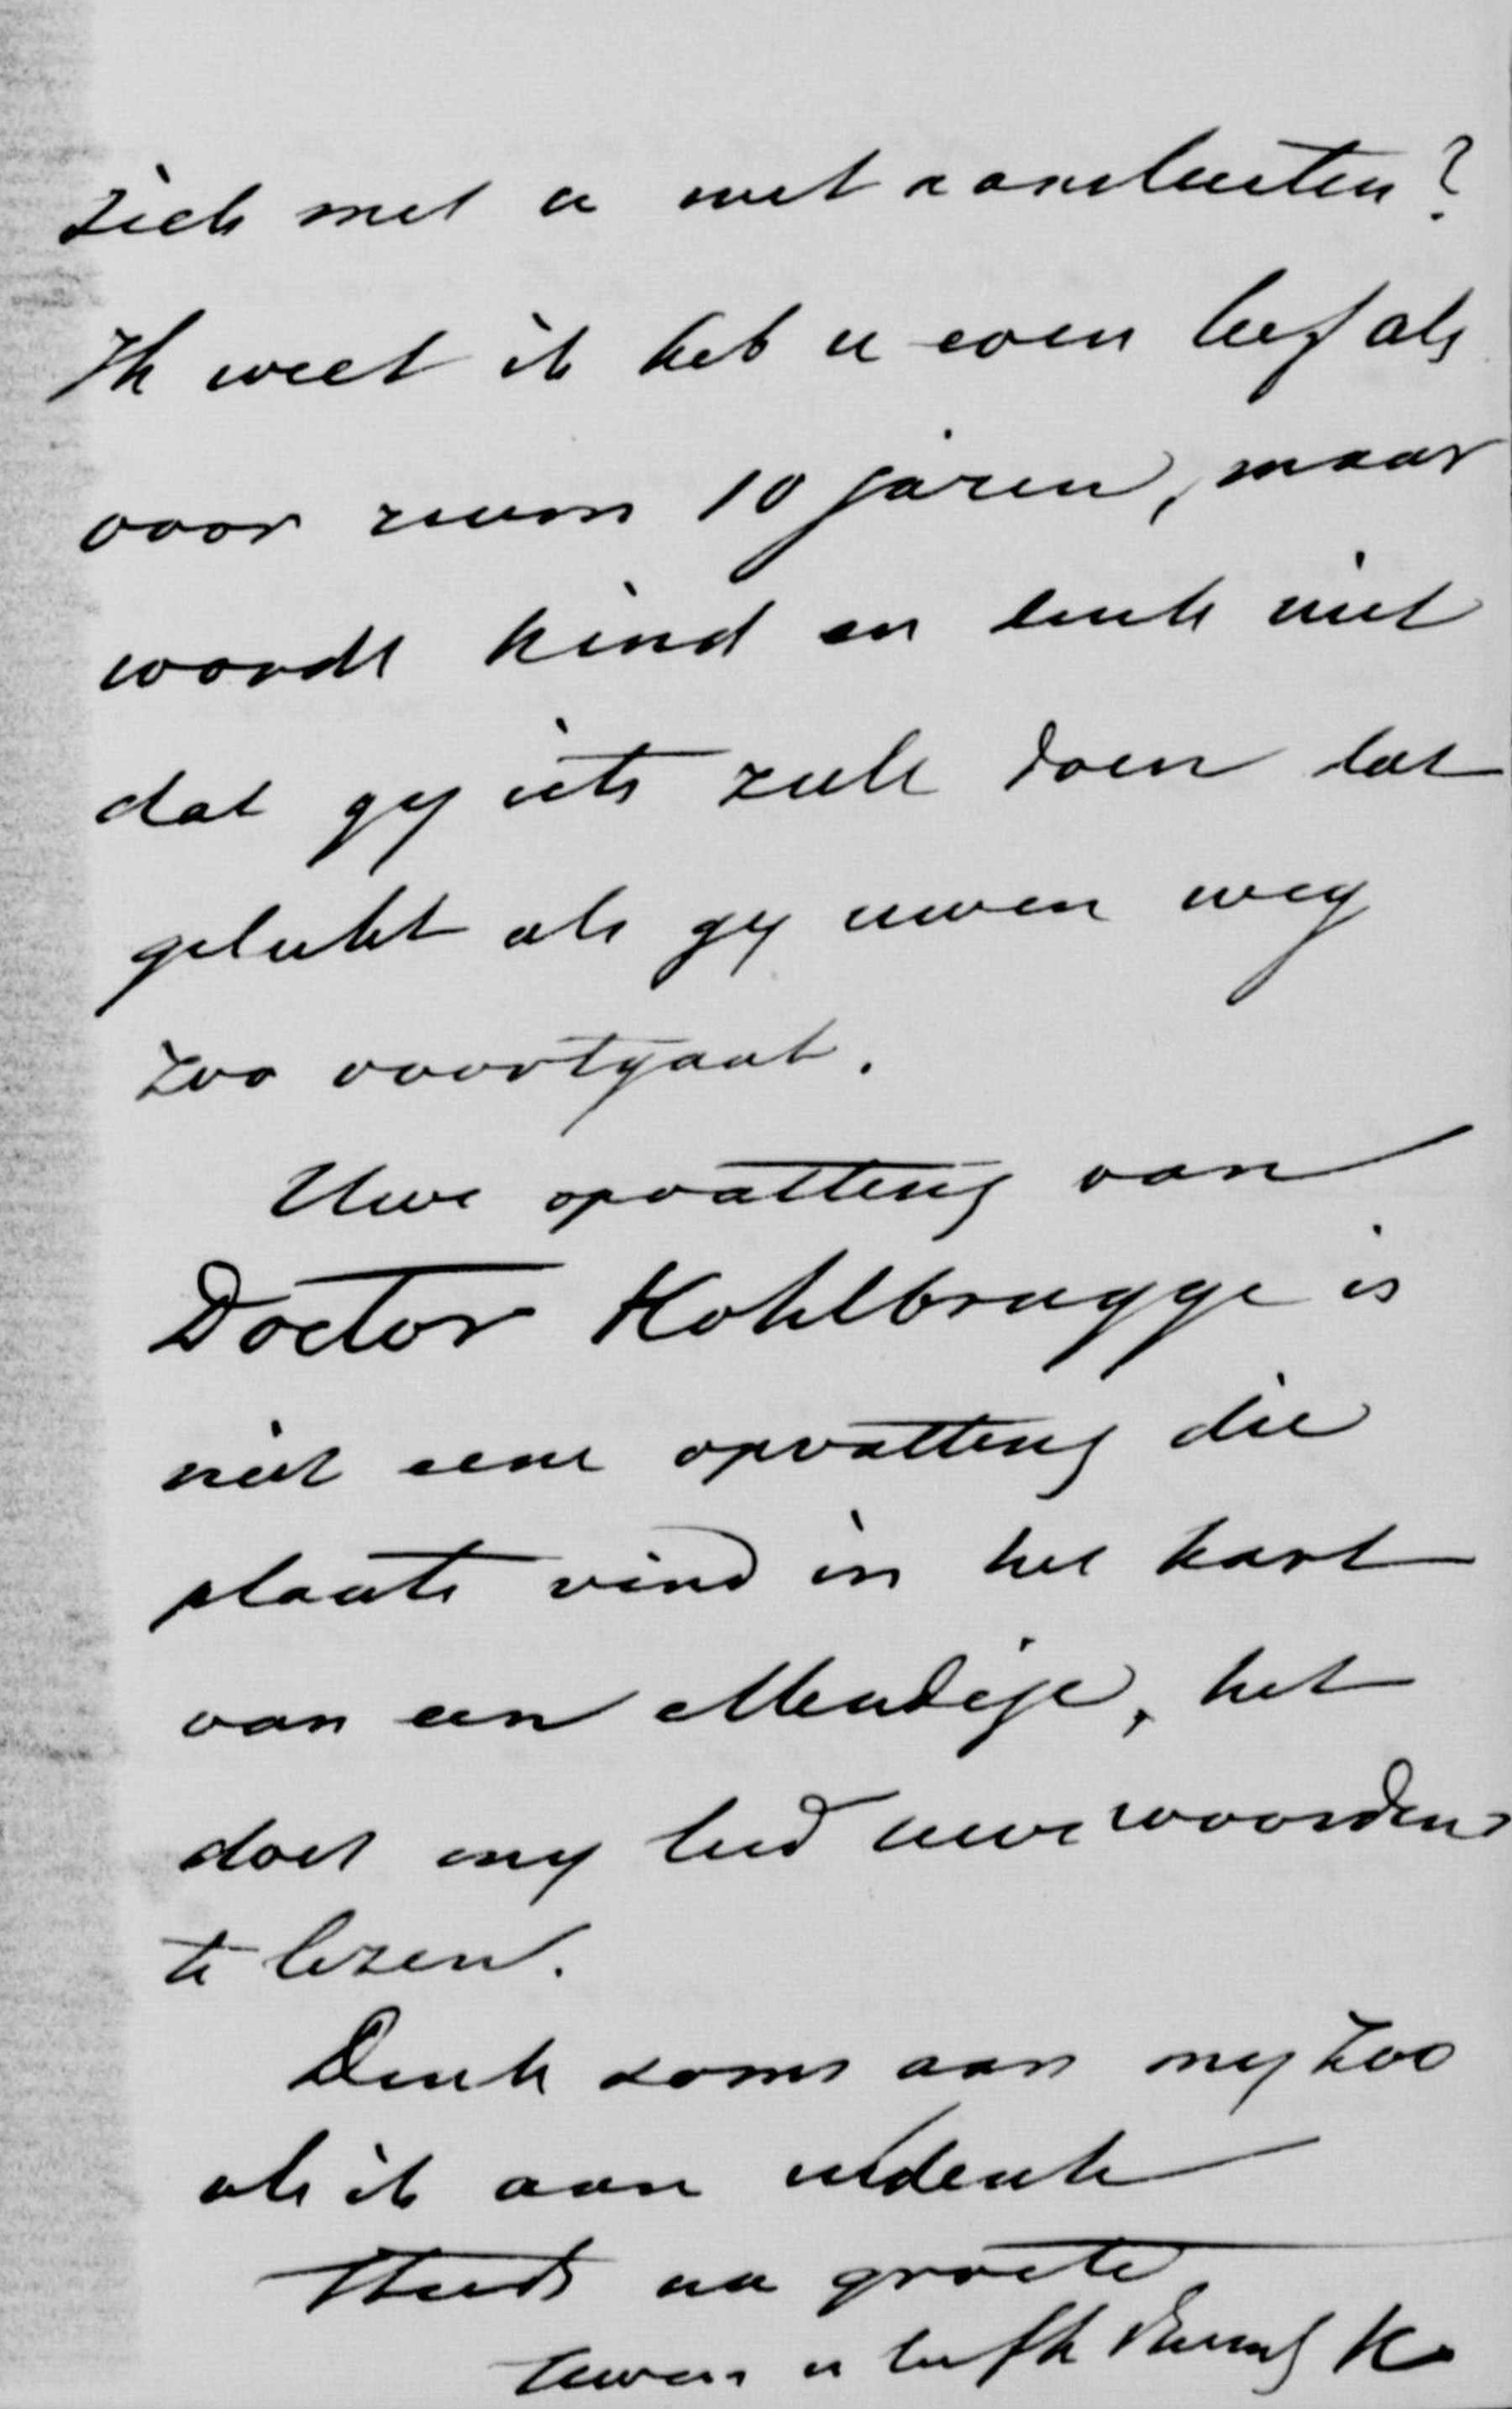 zich met u niet aansluiten?
Ik weet ik heb u even lief als
voor ruim 10 jaren, maar
wordt kind en denk niet
dat gij iets zult doen dat
gelukt als gij uwen weg
zoo voortgaat.
Uwe opvatting van
Doctor Kohlbrugge is
niet eene opvatting die
plaats vind in het hart
van een ellendige, het
doet mij leed uwe woorden
te lezen.
Denk soms aan mij zoo
als ik aan u denk
Steeds na groete
u liefh